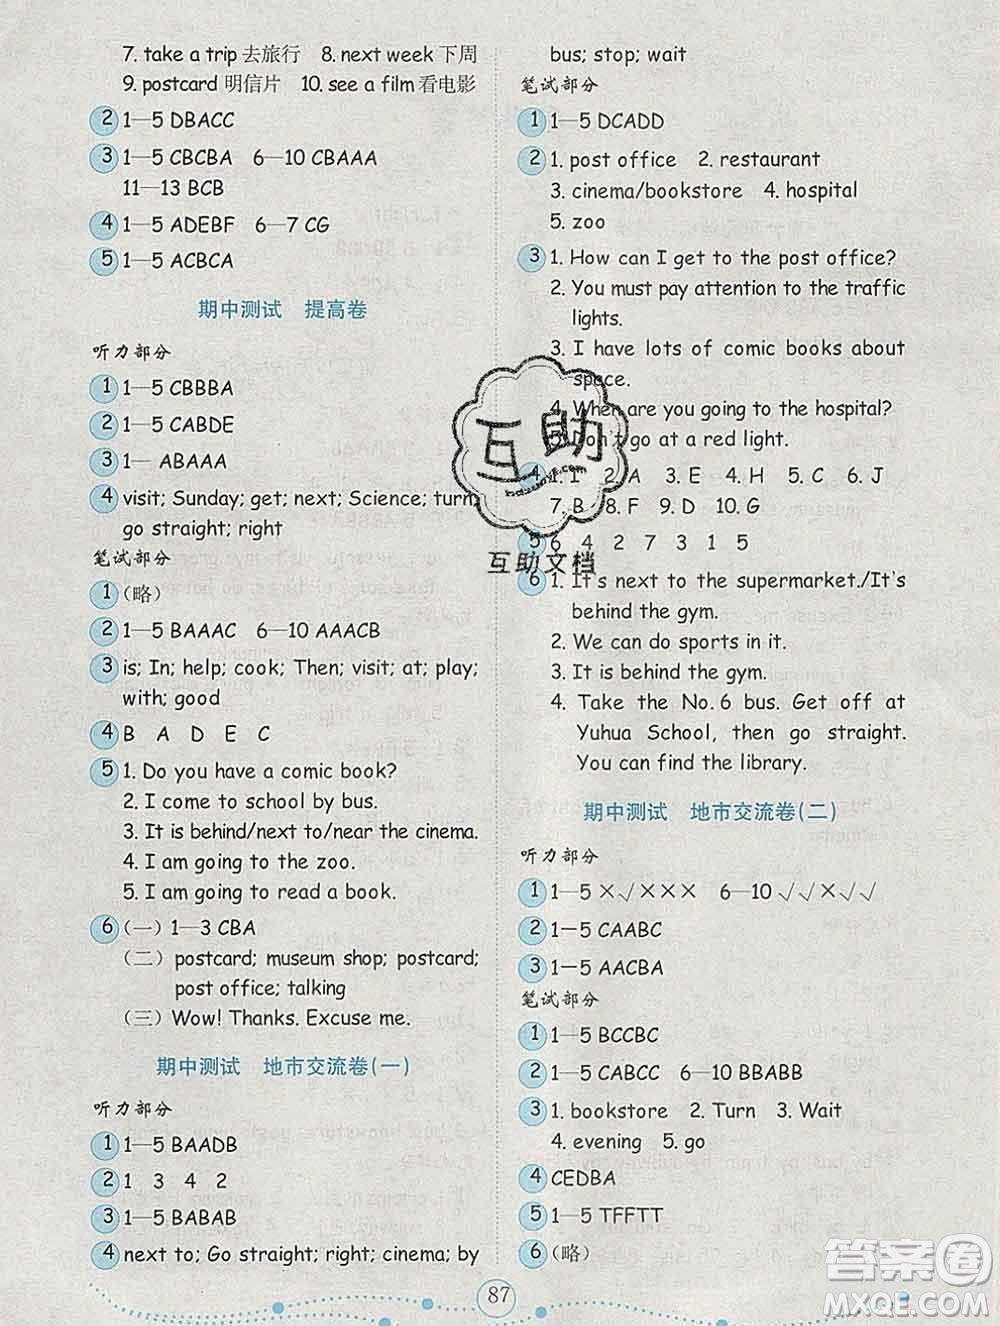 7. take a trip 去旅行 8. next week 下周
9. postcard 明信片 10. see a film 看电影
2 1—5 DBACC
3 1—5 CBCBA 6—10 CBAAA
11—13 BCB
4 1—5 ADEBF 6—7 CG
5 1—5 ACBCA
期中测试 提高卷
听力部分
1 1—5 CBBBA
2 1—5 CABDE
3 1— ABAAA
4 visit; Sunday; get; next; Science; turn;
go straight; right
笔试部分
1 (略)
2 1—5 BAAAC 6—10 AAACB
3 is; In; help; cook; Then; visit; at; play;
with; good
4 B A D E C
5 1. Do you have a comic book?
2. I come to school by bus.
3. It is behind/next to/near the cinema.
4. I am going to the zoo.
5. I am going to read a book.
6 (一) 1—3 CBA
(二) postcard; museum shop; postcard;
post office; talking
(三) Wow! Thanks. Excuse me.
期中测试 地市交流卷(一)
听力部分
1 1—5 BAADB
2 1 3 4 2
3 1—5 BABAB
4 next to; Go straight; right; cinema; by
bus; stop; wait
笔试部分
1 1—5 DCADD
2 1. post office 2. restaurant
3. cinema/bookstore 4. hospital
5. zoo
3 1. How can I get to the post office?
2. You must pay attention to the traffic
lights.
3. I have lots of comic books about
space.
4. When are you going to the hospital?
5. Don't go at a red light.
4 1. I 2. A 3. E 4. H 5. C 6. J
7. B 8. F 9. D 10. G
5 6 4 2 7 3 1 5
6 1. It's next to the supermarket./It's
behind the gym.
2. We can do sports in it.
3. It is behind the gym.
4. Take the No. 6 bus. Get off at
Yuhua School, then go straight.
You can find the library.
期中测试 地市交流卷(二)
听力部分
1 1—5 ×√××× 6—10 √√×√√
2 1—5 CAABC
3 1—5 AACBA
笔试部分
1 1—5 BCCBC
2 1—5 CABCC 6—10 BBABB
3 1. bookstore 2. Turn 3. Wait
4. evening 5. go
4 CEDBA
5 1—5 TFFTT
6 (略)
87
互助
互助文档
答案圈
MXQE.COM